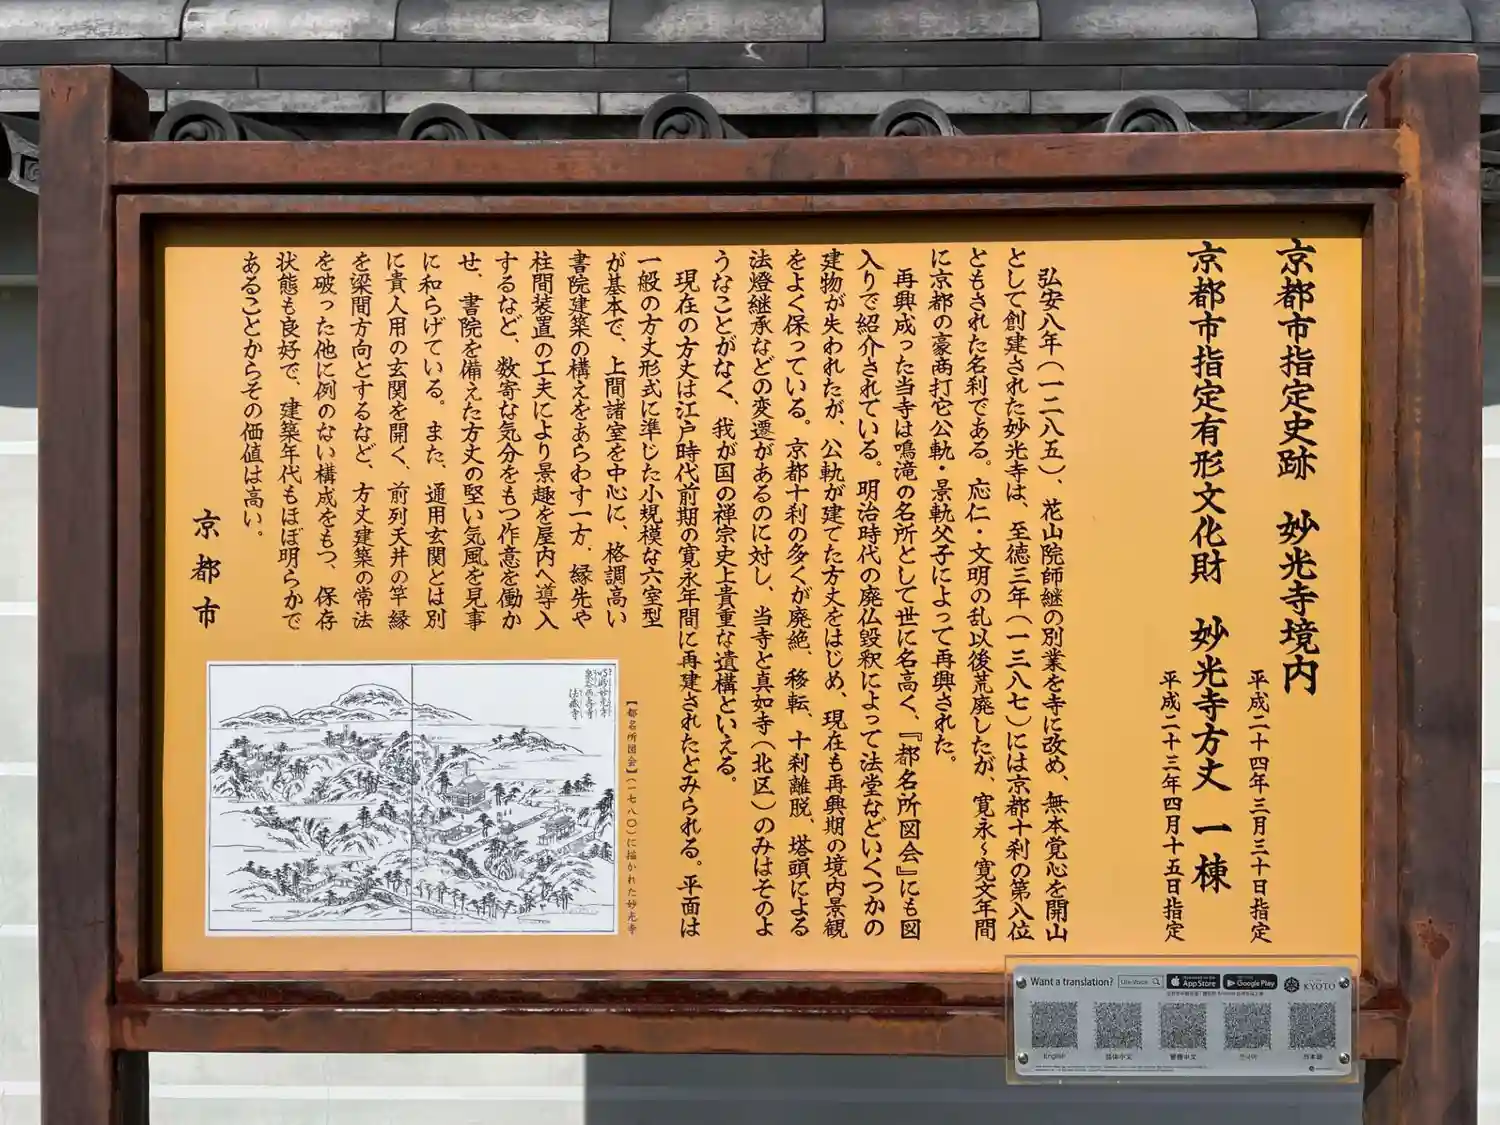 京都市指定史跡　妙光寺境内
平成二十四年三月三十日指定
京都市指定有形文化財　妙光寺方丈　一棟
平成二十三年四月十五日指定
弘安八年（一二八五）、花山院師継の別業を寺に改め、無本覚心を開山
として創建された妙光寺は、至徳三年（一三八七）には京都十刹の第八位
ともされた名刹である。応仁・文明の乱以後荒廃したが、寛永～寛文年間
に京都の豪商打它公軌・景軌父子によって再興された。
再興成った当寺は鳴滝の名所として世に名高く、『都名所図会』にも図
入りで紹介されている。明治時代の廃仏毀釈によって法堂などいくつかの
建物が失われたが、公軌が建てた方丈をはじめ、現在も再興期の境内景観
をよく保っている。京都十刹の多くが廃絶、移転、十刹離脱、塔頭による
法燈継承などの変遷があるのに対し、当寺と真如寺（北区）のみはそのよ
うなことがなく、我が国の禅宗史上貴重な遺構といえる。
現在の方丈は江戸時代前期の寛永年間に再建されたとみられる。平面は
一般の方丈形式に準じた小規模な六室型
が基本で、上間諸室を中心に、格調高い
書院建築の構えをあらわす一方、縁先や
柱間装置の工夫により景趣を屋内へ導入
するなど、数寄な気分をもつ作意を働か
せ、書院を備えた方丈の堅い気風を見事
に和らげている。また、通用玄関とは別
に貴人用の玄関を開く、前列天井の竿縁
を梁間方向とするなど、方丈建築の常法
を破った他に例のない構成をもつ、保存
状態も良好で、建築年代もほぼ明らかで
あることからその価値は高い。
京都市
【都名所図会】（一七八〇）に描かれた妙光寺
妙光寺
法蔵寺
Want a translation?
App Store
Google Play
KYOTO
English
简体中文
繁體中文
한국어
日本語